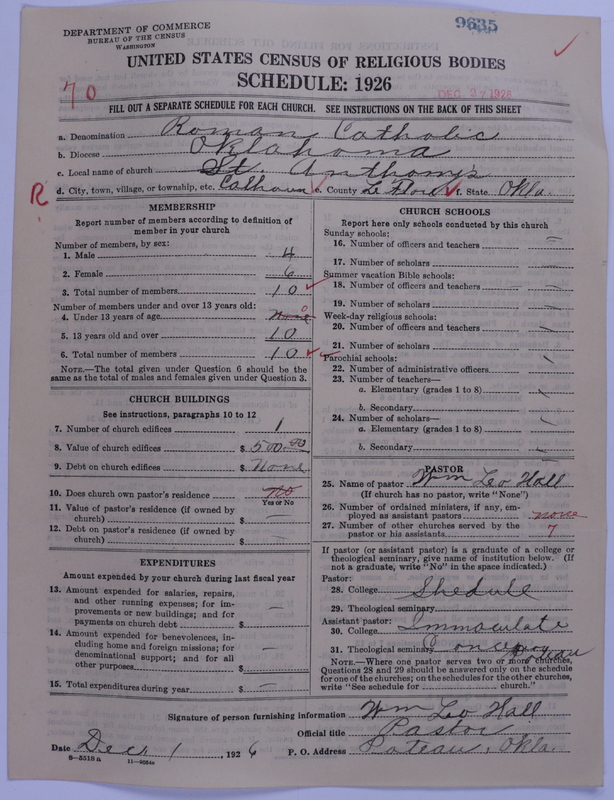 DEPARTMENT OF COMMERCE
BUREAU OF THE CENSUS
WASHINGTON
9635
UNITED STATES CENSUS OF RELIGIOUS BODIES
SCHEDULE: 1926
70
DEC 27 1926
FILL OUT A SEPARATE SCHEDULE FOR EACH CHURCH. SEE INSTRUCTIONS ON THE BACK OF THIS SHEET
a. Denomination Roman Catholic
b. Diocese Oklahoma
c. Local name of church St. Anthony's
R d. City, town, village, or township, etc. Calhoun e. County Le Flore f. State Okla.
MEMBERSHIP
Report number of members according to definition of
member in your church
Number of members, by sex:
1. Male 4
2. Female 6
3. Total number of members 10
Number of members under and over 13 years old:
4. Under 13 years of age None 0
5. 13 years old and over 10
6. Total number of members 10
NOTE.—The total given under Question 6 should be the
same as the total of males and females given under Question 3.
CHURCH BUILDINGS
See instructions, paragraphs 10 to 12
7. Number of church edifices 1
8. Value of church edifices $500.00
9. Debt on church edifices $None
10. Does church own pastor's residence no
Yes or No
11. Value of pastor's residence (if owned by
church) $ —
12. Debt on pastor's residence (if owned by
church) $ —
EXPENDITURES
Amount expended by your church during last fiscal year
13. Amount expended for salaries, repairs,
and other running expenses; for im-
provements or new buildings; and for
payments on church debt $ —
14. Amount expended for benevolences, in-
cluding home and foreign missions; for
denominational support; and for all
other purposes $ —
15. Total expenditures during year $ —
CHURCH SCHOOLS
Report here only schools conducted by this church
Sunday schools:
16. Number of officers and teachers —
17. Number of scholars —
Summer vacation Bible schools:
18. Number of officers and teachers —
19. Number of scholars —
Week-day religious schools:
20. Number of officers and teachers —
21. Number of scholars —
Parochial schools:
22. Number of administrative officers —
23. Number of teachers—
a. Elementary (grades 1 to 8) —
b. Secondary
24. Number of scholars—
a. Elementary (grades 1 to 8) —
b. Secondary —
PASTOR
25. Name of pastor Wm Leo Hall
(If church has no pastor, write "None")
26. Number of ordained ministers, if any, em-
ployed as assistant pastors none
27. Number of other churches served by the
pastor or his assistants 7
If pastor (or assistant pastor) is a graduate of a college or
theological seminary, give name of institution below. (If
not a graduate, write "No" in the space indicated.)
Pastor:
28. College Shedule
29. Theological seminary
Assistant pastor:
30. College Immaculate
31. Theological seminary Concep. Poteau
NOTE.—Where one pastor serves two or more churches,
Questions 28 and 29 should be answered only on the schedule
for one of the churches; on the schedules for the other churches,
write "See schedule for church."
Signature of person furnishing information Wm Leo Hall
Official title Pastor
Date Dec 1, 1926 P. O. Address Poteau, Okla.
8—5518 a